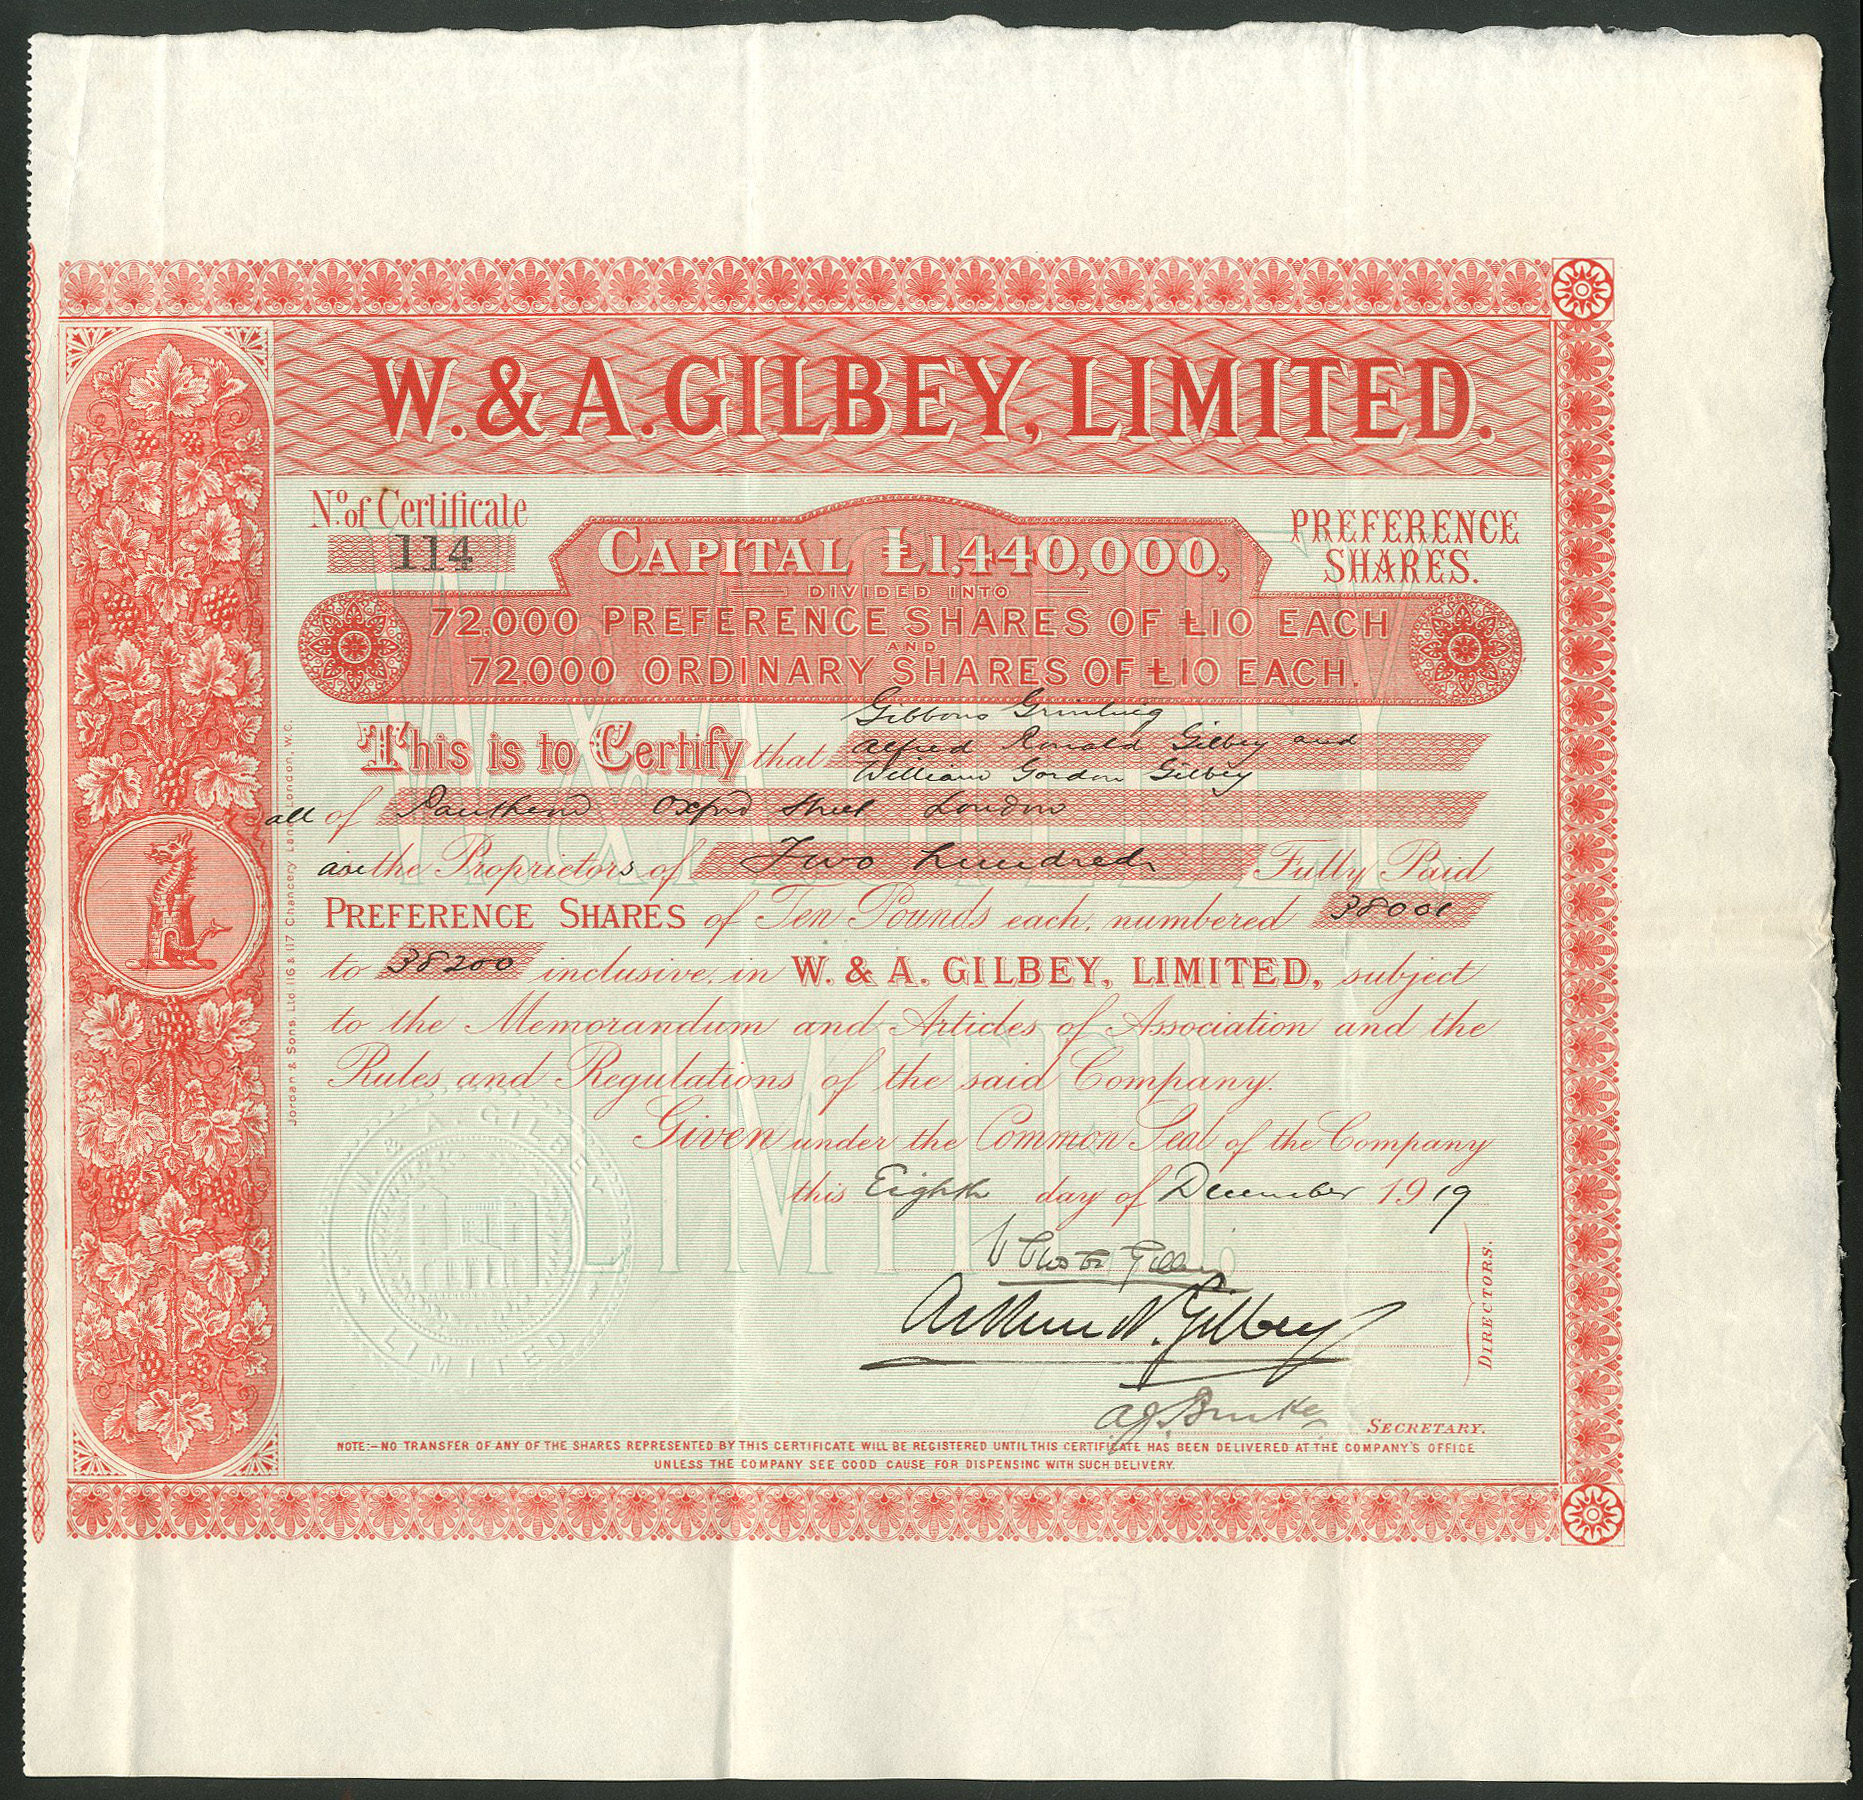 W. & A. GILBEY, LIMITED.
No. of Certificate
114
PREFERENCE
SHARES.
CAPITAL £1,440,000,
DIVIDED INTO
72,000 PREFERENCE SHARES OF £10 EACH
AND
72,000 ORDINARY SHARES OF £10 EACH.
Gibbons Grinling
This is to Certify that Alfred Ronald Gilbey and
William Gordon Gilbey
all of Pantheon Oxford Street London
are the Proprietors of Two hundred Fully Paid
PREFERENCE SHARES of Ten Pounds each, numbered 38001
to 38200 inclusive, in W. & A. GILBEY, LIMITED, subject
to the Memorandum and Articles of Association and the
Rules and Regulations of the said Company.
Given under the Common Seal of the Company
this Eighth day of December 1919
Gilbey
Arthur N. Gilbey
DIRECTORS.
A.J.
SECRETARY.
NOTE:—NO TRANSFER OF ANY OF THE SHARES REPRESENTED BY THIS CERTIFICATE WILL BE REGISTERED UNTIL THIS CERTIFICATE HAS BEEN DELIVERED AT THE COMPANY'S OFFICE
UNLESS THE COMPANY SEE GOOD CAUSE FOR DISPENSING WITH SUCH DELIVERY.
Jordan & Sons, Ltd. 116 & 117 Chancery Lane London, W.C.
W. & A. GILBEY
LIMITED
W. & A. GILBEY.
LIMITED.